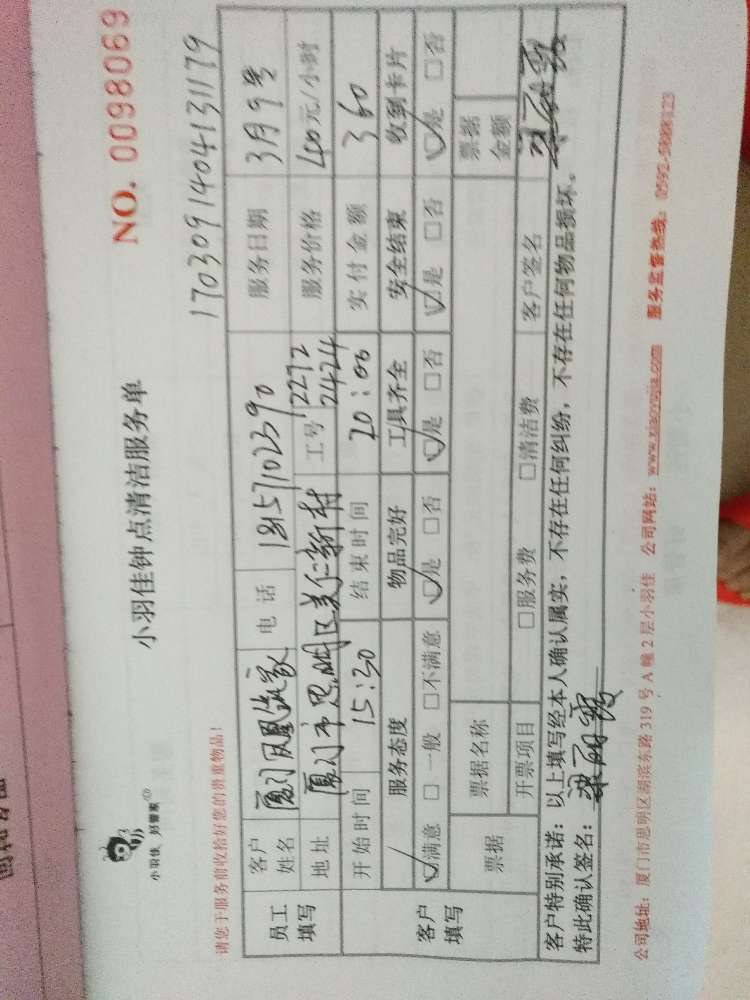 小羽佳 好管家
小羽佳钟点清洁服务单
NO. 0098069
1703091404131179
请您于服务前收拾好您的贵重物品！
员工填写 客户姓名 厦门凤凰筑家 电话 18157102390 服务日期 3月9号
地址 厦门市思明区美仁新村 工号 2272 2424 服务价格 40元/小时
客户填写 开始时间 15:30 结束时间 20:00 实付金额 360
服务态度 物品完好 工具齐全 安全结束 收到卡片
☑满意 □一般 □不满意 ☑是 □否 ☑是 □否 ☑是 □否 ☑是 □否
票据 票据名称 票据金额
开票项目 □服务费 □清洁费 客户签名
客户特别承诺：以上填写经本人确认属实，不存在任何纠纷，不存在任何物品损坏。
特此确认签名：
公司地址：厦门市思明区湖滨东路 319 号 A 幢 2 层小羽佳 公司网站：www.xiaoyujia.com 服务监督热线：0592-5888123